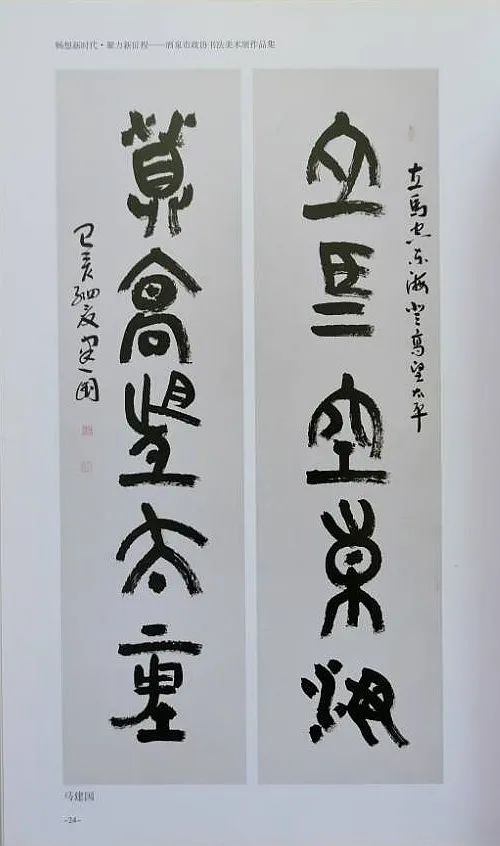 畅想新时代·聚力新征程——酒泉市政协书法美术展作品集
立馬空东海登高望太平
立馬空東海
登高望太平
己亥初夏建国
马建国
-24-